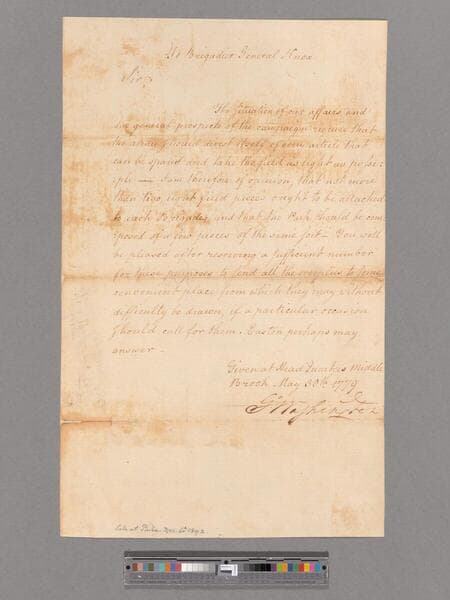 To Brigadier General Knox
Sir,
The situation of our affairs and
the general prospects of the campaign require that
the army should divest itself of every article that
can be spared and take the field as light as possi-
ble — I am therefore of opinion, that not more
than two light field pieces ought to be attached
to each Brigade, and that the Park should be com-
posed of a few pieces of the same sort — You will
be pleased after reserving a sufficient number
for these purposes to send all the surplus to some
convenient place from which they may without
difficulty be drawn, if a particular occasion
should call for them. Easton perhaps may
answer —
Given at Head Quarters Middle
Brook May 30th. 1779
Go: Washington
Sale at Phila. Dec. 1892